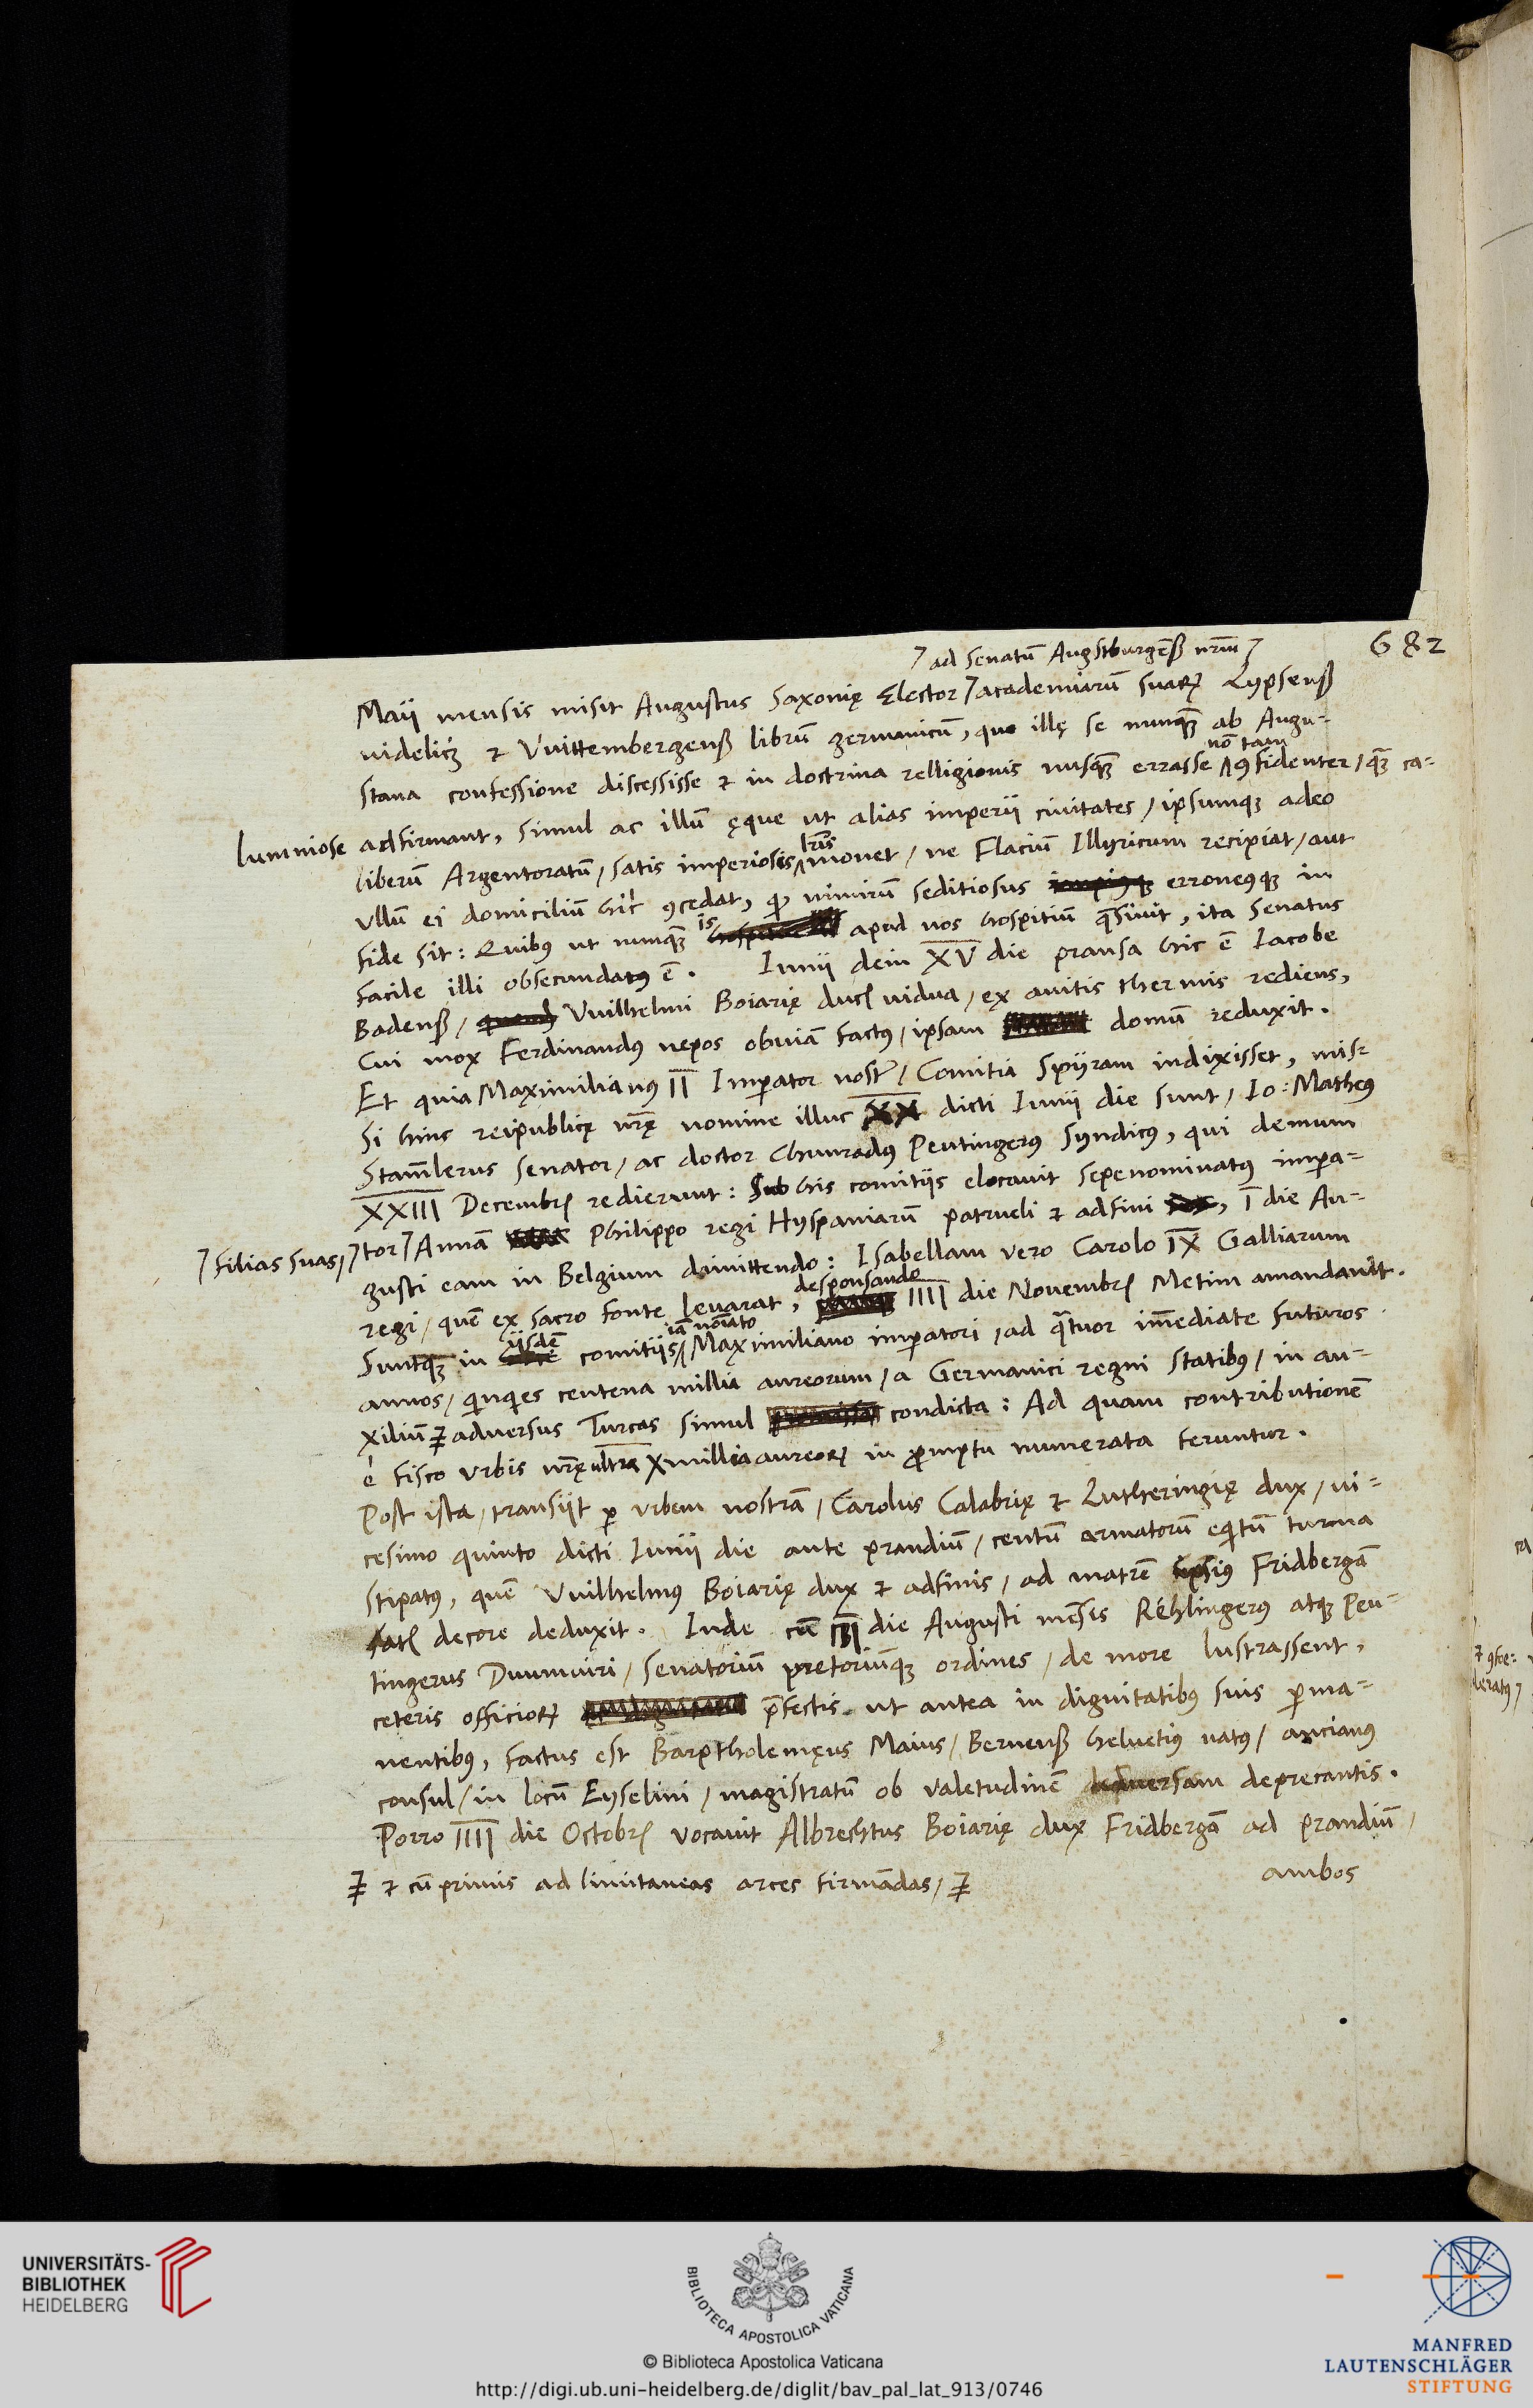 682
⁊ ad Senatū Augstburgēß nrm̄ ⁊
Maij mensis misit Augustus Saxonię Elector ⁊ academiarū suarꝝ Lypsenß
videlicꝫ & Vuittembergenß librū germanicū, quo illę se nunqꝫ ab Augu-
stana confessione discessisse & in doctrina relligionis nusqꝫ errasse nō tam ꝯfidenter / qꝫ ca-
lumniose adfirmant, simul ac illū ęque ut alias imperii ciuitates / ipsumqꝫ adeo
liberū Argentoratū / satis imperiosis lris monet / ne Flaciū Illyricum recipiat / aut
vllū ei domiciliū hic ꝯcedat, qd nimirū seditiosus erroneqꝫ in
fide sit: Quibꝰ ut nunqꝫ is apud nos hospitiū quęsiuit, ita Senatus
facile illi obsecundatꝰ ē. Iunij dein XV die pransa hic ē Iacobe
Badenß / Vuilhelmi Boiarię ducꝭ vidua / ex auitis thermis rediens,
Cui mox Ferdinandꝰ nepos obuiā factꝰ / ipsam domū reduxit.
Et quia Maximilianꝰ II Imperator nostr / Comitia Spiram indixisset, mis-
si hinc reipublicę nrę nomine illuc XX dicti Iunij die sunt / Io: Matheꝰ
Stamlerus senator / ac doctor Chunradꝰ Peutingerꝰ Syndicꝰ, qui demum
XXIII Decembrꝭ redierunt: Sub his comitiis elocauit sepenominatꝰ impera-
⁊ filias suas / ⁊ tor ⁊ Annā Philippo regi Hyspaniarū patrueli & adfini, I die Au-
gusti eam in Belgium dimittendo: Isabellam vero Carolo IX Galliarum
regi / quē ex sacro fonte leuarat, desponsando IIII die Novembrꝭ Metim amandauit.
Suntqꝫ in iisdē comitiis iā noīato Maximiliano imperatori / ad quatuor im̄ediate futuros
annos / quinquies centena millia aureorum / a Germanici regni statibꝰ / in au-
xiliū adversus Turcas simul condicta: Ad quam contributionē
è fisco vrbis nrę ultra X millia aureorꝝ in promptu numerata feruntur.
Post ista / transiit per vrbem nostrā / Carolus Calabrię & Lutheringię dux / vi-
cesimo quinto dicti Iunij die ante prandiū / centū armatorū equitū turma
stipatꝰ, quē Vuilhelmꝰ Boiarię dux & adfinis / ad matrē ipsius Fridbergā
satꝭ decore deduxit. Inde cū III die Augusti mēsis Réhlingerꝰ atqꝫ Peu-
tingerus Duumuiri / senatoriū pretoriūqꝫ ordines / de more lustrassent,
ceteris officiorꝝ pręfectis ut antea in dignitatibꝰ suis perma-
nentibꝰ, factus est Barptholemęus Maius / Bernenß heluetiꝰ natꝰ / ancianꝰ
consul / in locū Eyselini / magistratū ob valetudinē adversam deprecantis.
Porro IIII die Octobrꝭ vocauit Albrechtus Boiarię dux Fridbergā ad prandiū /
& cū primis ad limitaneas arces firmādas /
ambos
UNIVERSITÄTS-
BIBLIOTHEK
HEIDELBERG
BIBLIOTECA APOSTOLICA VATICANA
© Biblioteca Apostolica Vaticana
http://digi.ub.uni-heidelberg.de/diglit/bav_pal_lat_913/0746
MANFRED
LAUTENSCHLÄGER
STIFTUNG